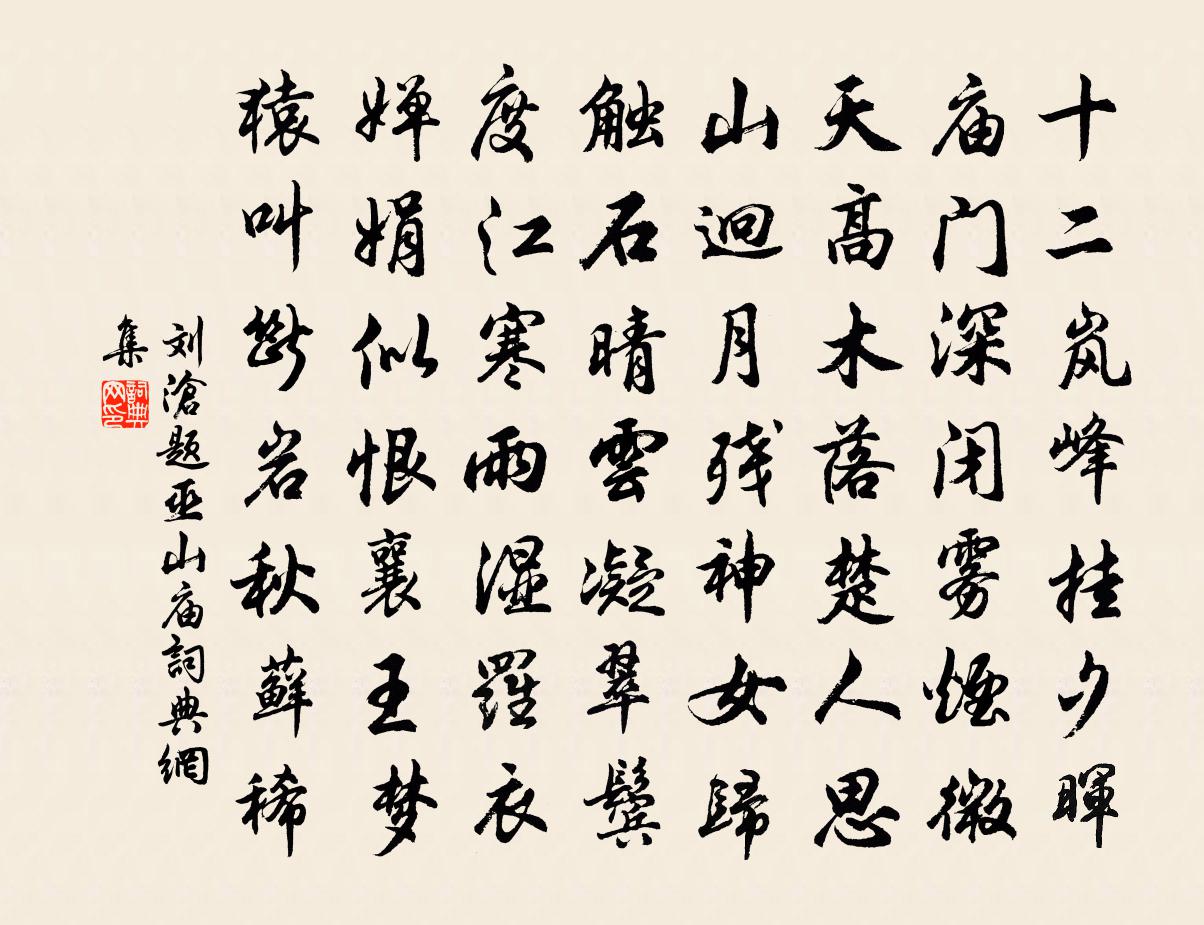 十二岚峰挂夕暉
庙门深闭雾煙微
天高木落楚人思
山迥月残神女歸
触石晴雲凝翠鬓
度江寒雨湿羅衣
婵娟似恨襄王梦
猿叫断岩秋蘚稀
刘滄题巫山庙詞典網
集
詞典网印